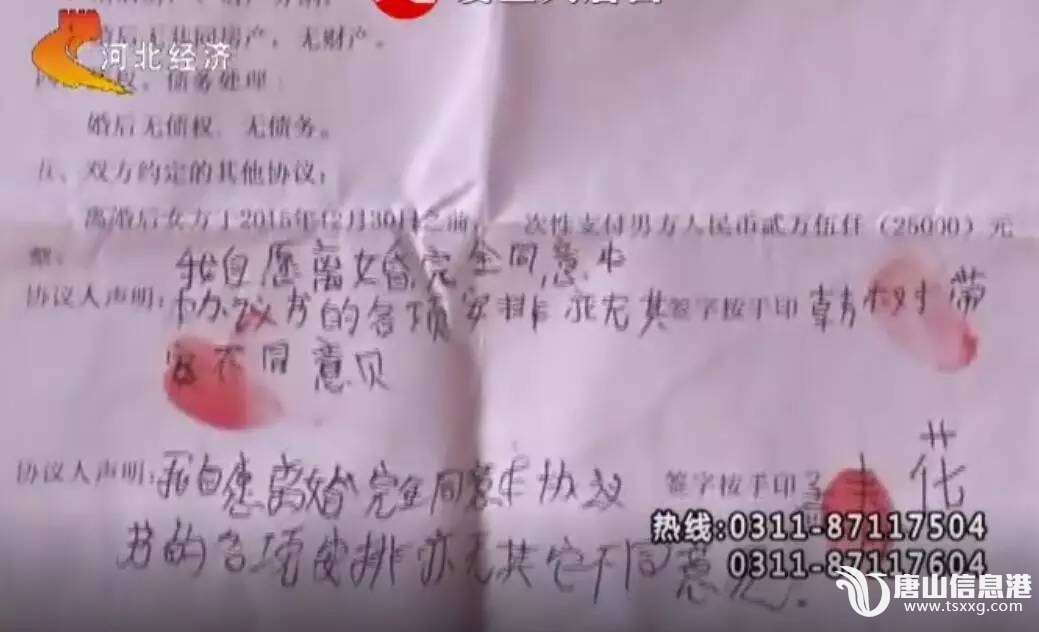 河北经济
婚后无共同房产，无财产。
权、债务处理：
婚后无债权、无债务。
五、双方约定的其他协议：
离婚后女方于2015年12月30日之前，一次性支付男方人民币贰万伍仟（25000）元
整。
我自愿离婚完全同意本
协议人声明：协议书的各项安排亦无其 签字按手印
它不同意见
协议人声明：我自愿离婚完全同意本协议 签字按手印 花
书的各项安排亦无其它不同意见.
热线:0311-87117504
0311-87117604
唐山信息港
www.tsxxg.com